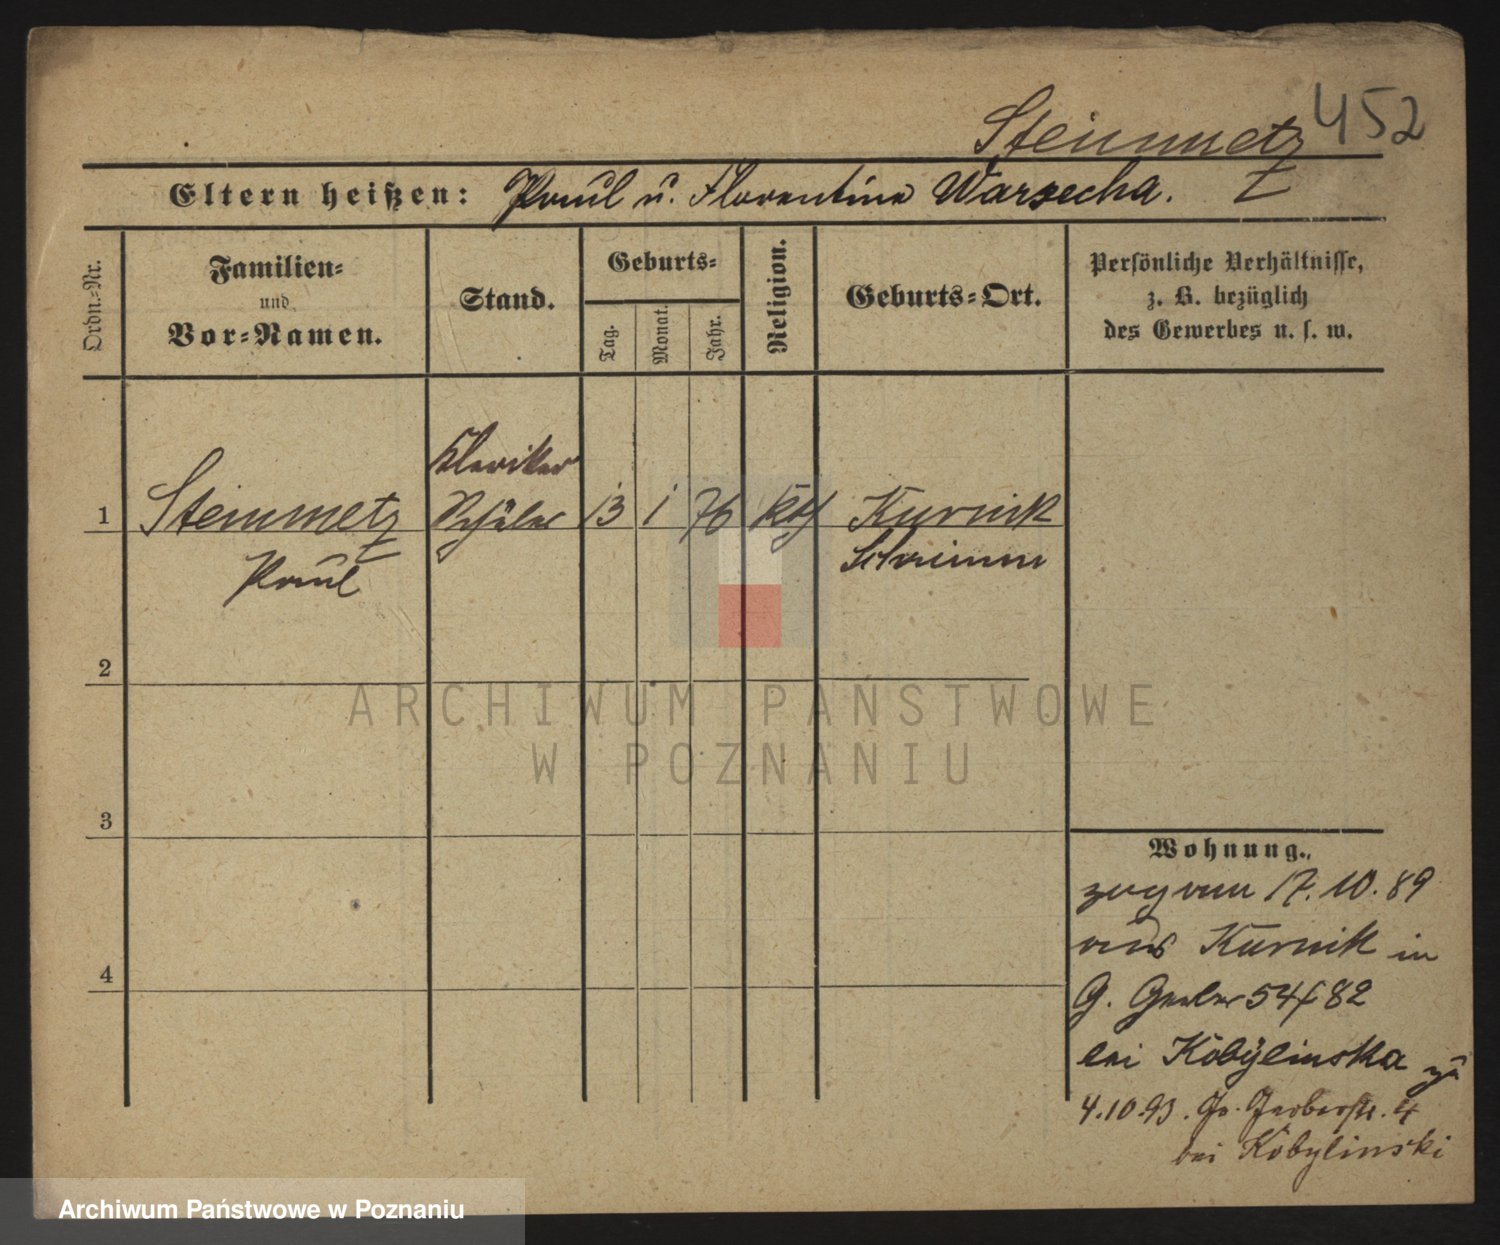 Steinmetz 452
Eltern heißen: Paul u. Florentine Warzecha.
Ordn.-Nr.
Familien-
und
Vor-Namen.
Stand.
Geburts-
Tag.
Monat.
Jahr.
Religion.
Geburts-Ort.
Persönliche Verhältnisse,
z. B. bezüglich
des Gewerbes u. s. w.
Kleriker
1 Steinmetz Schüler 13 1 76 kth Kurnik
Paul Schrimm
2
3
4
Wohnung.
zog am 17.10.89
aus Kurnik in
G. Gerber 54/82
bei Kobylinska
4.10.93. Gr. Gerberstr. 4
bei Kobylinski
ARCHIWUM PAŃSTWOWE
W POZNANIU
Archiwum Państwowe w Poznaniu